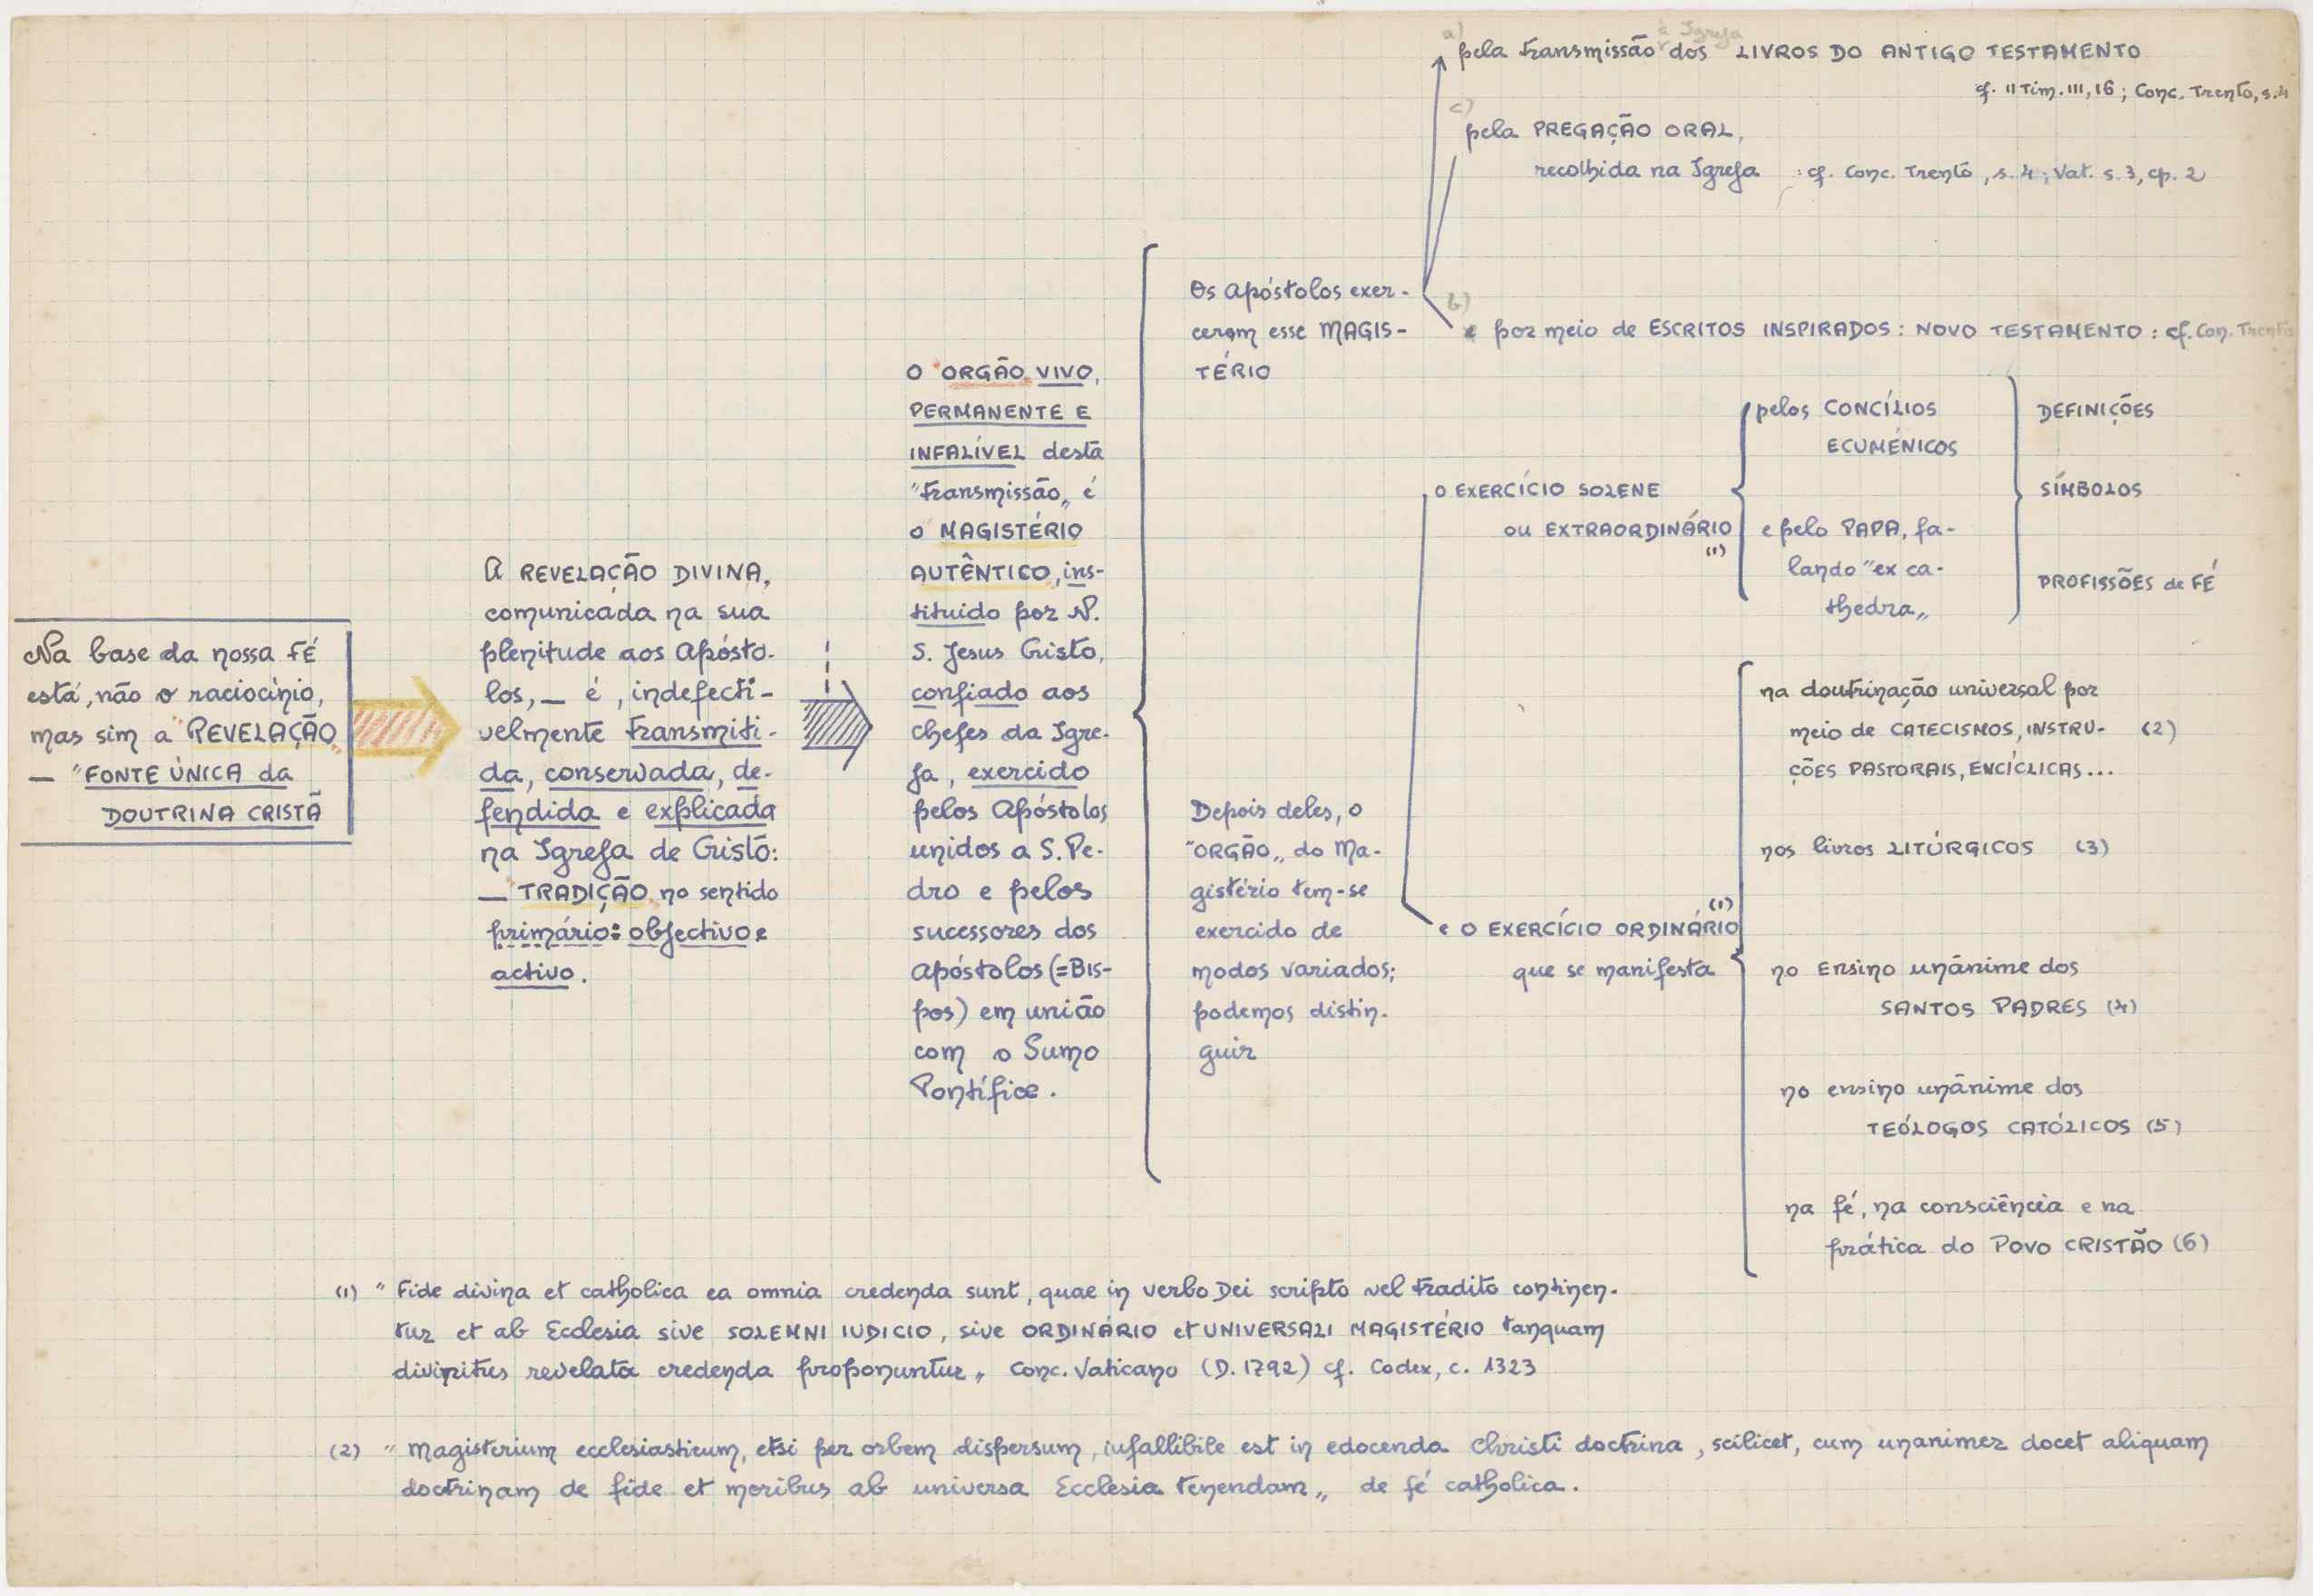 Na base da nossa FÉ
está, não o raciocínio,
mas sim a "REVELAÇÃO„
— "FONTE ÚNICA da
DOUTRINA CRISTÃ
A REVELAÇÃO DIVINA,
comunicada na sua
plenitude aos Apósto-
los, — é, indefecti-
velmente transmiti-
da, conservada, de-
fendida e explicada
na Igreja de Cristo:
— "TRADIÇÃO„ no sentido
primário: objectivo e
activo.
O "ORGÃO„ VIVO,
PERMANENTE E
INFALÍVEL desta
"transmissão„ é
o MAGISTÉRIO
AUTÊNTICO, ins-
tituido por N.
S. Jesus Cristo,
confiado aos
chefes da Igre-
ja, exercido
pelos Apóstolos
unidos a S. Pe-
dro e pelos
sucessores dos
Apóstolos (=Bis-
pos) em união
com o Sumo
Pontífice.
Os Apóstolos exer-
ceram esse MAGIS-
TÉRIO
a) à Igreja
pela transmissão dos LIVROS DO ANTIGO TESTAMENTO
cf. II Tim. III, 16; Conc. Trento, s.4
c)
pela PREGAÇÃO ORAL,
recolhida na Igreja : cf. Conc. Trento, s. 4; Vat. s. 3, cp. 2
b)
e por meio de ESCRITOS INSPIRADOS: NOVO TESTAMENTO: cf. Con. Trento
Depois deles, o
"ORGÃO„ do Ma-
gistério tem-se
exercido de
modos variados;
podemos distin-
guir
O EXERCÍCIO SOLENE
OU EXTRAORDINÁRIO
(1)
pelos CONCÍLIOS
ECUMÉNICOS
e pelo PAPA, fa-
lando "ex ca-
thedra„
DEFINIÇÕES
SÍMBOLOS
PROFISSÕES de FÉ
(1)
e O EXERCÍCIO ORDINÁRIO
que se manifesta
na doutrinação universal por
meio de CATECISMOS, INSTRU- (2)
ÇÕES PASTORAIS, ENCÍCLICAS...
nos livros LITÚRGICOS (3)
no Ensino unânime dos
SANTOS PADRES (4)
no ensino unânime dos
TEÓLOGOS CATÓLICOS (5)
na fé, na consciência e na
prática do POVO CRISTÃO (6)
(1) "Fide divina et catholica ea omnia credenda sunt, quae in verbo Dei scripto vel tradito continen-
tur et ab Ecclesia sive SOLEMNI IUDICIO, sive ORDINÁRIO et UNIVERSALI MAGISTÉRIO tanquam
divinitus revelata credenda proponuntur„ Conc. Vaticano (D. 1792) cf. Codex, c. 1323
(2) "Magisterium ecclesiasticum, etsi per orbem dispersum, infallibile est in edocenda Christi doctrina, scilicet, cum unanimez docet aliquam
doctrinam de fide et moribus ab universa Ecclesia tenendam„ de fé catholica.